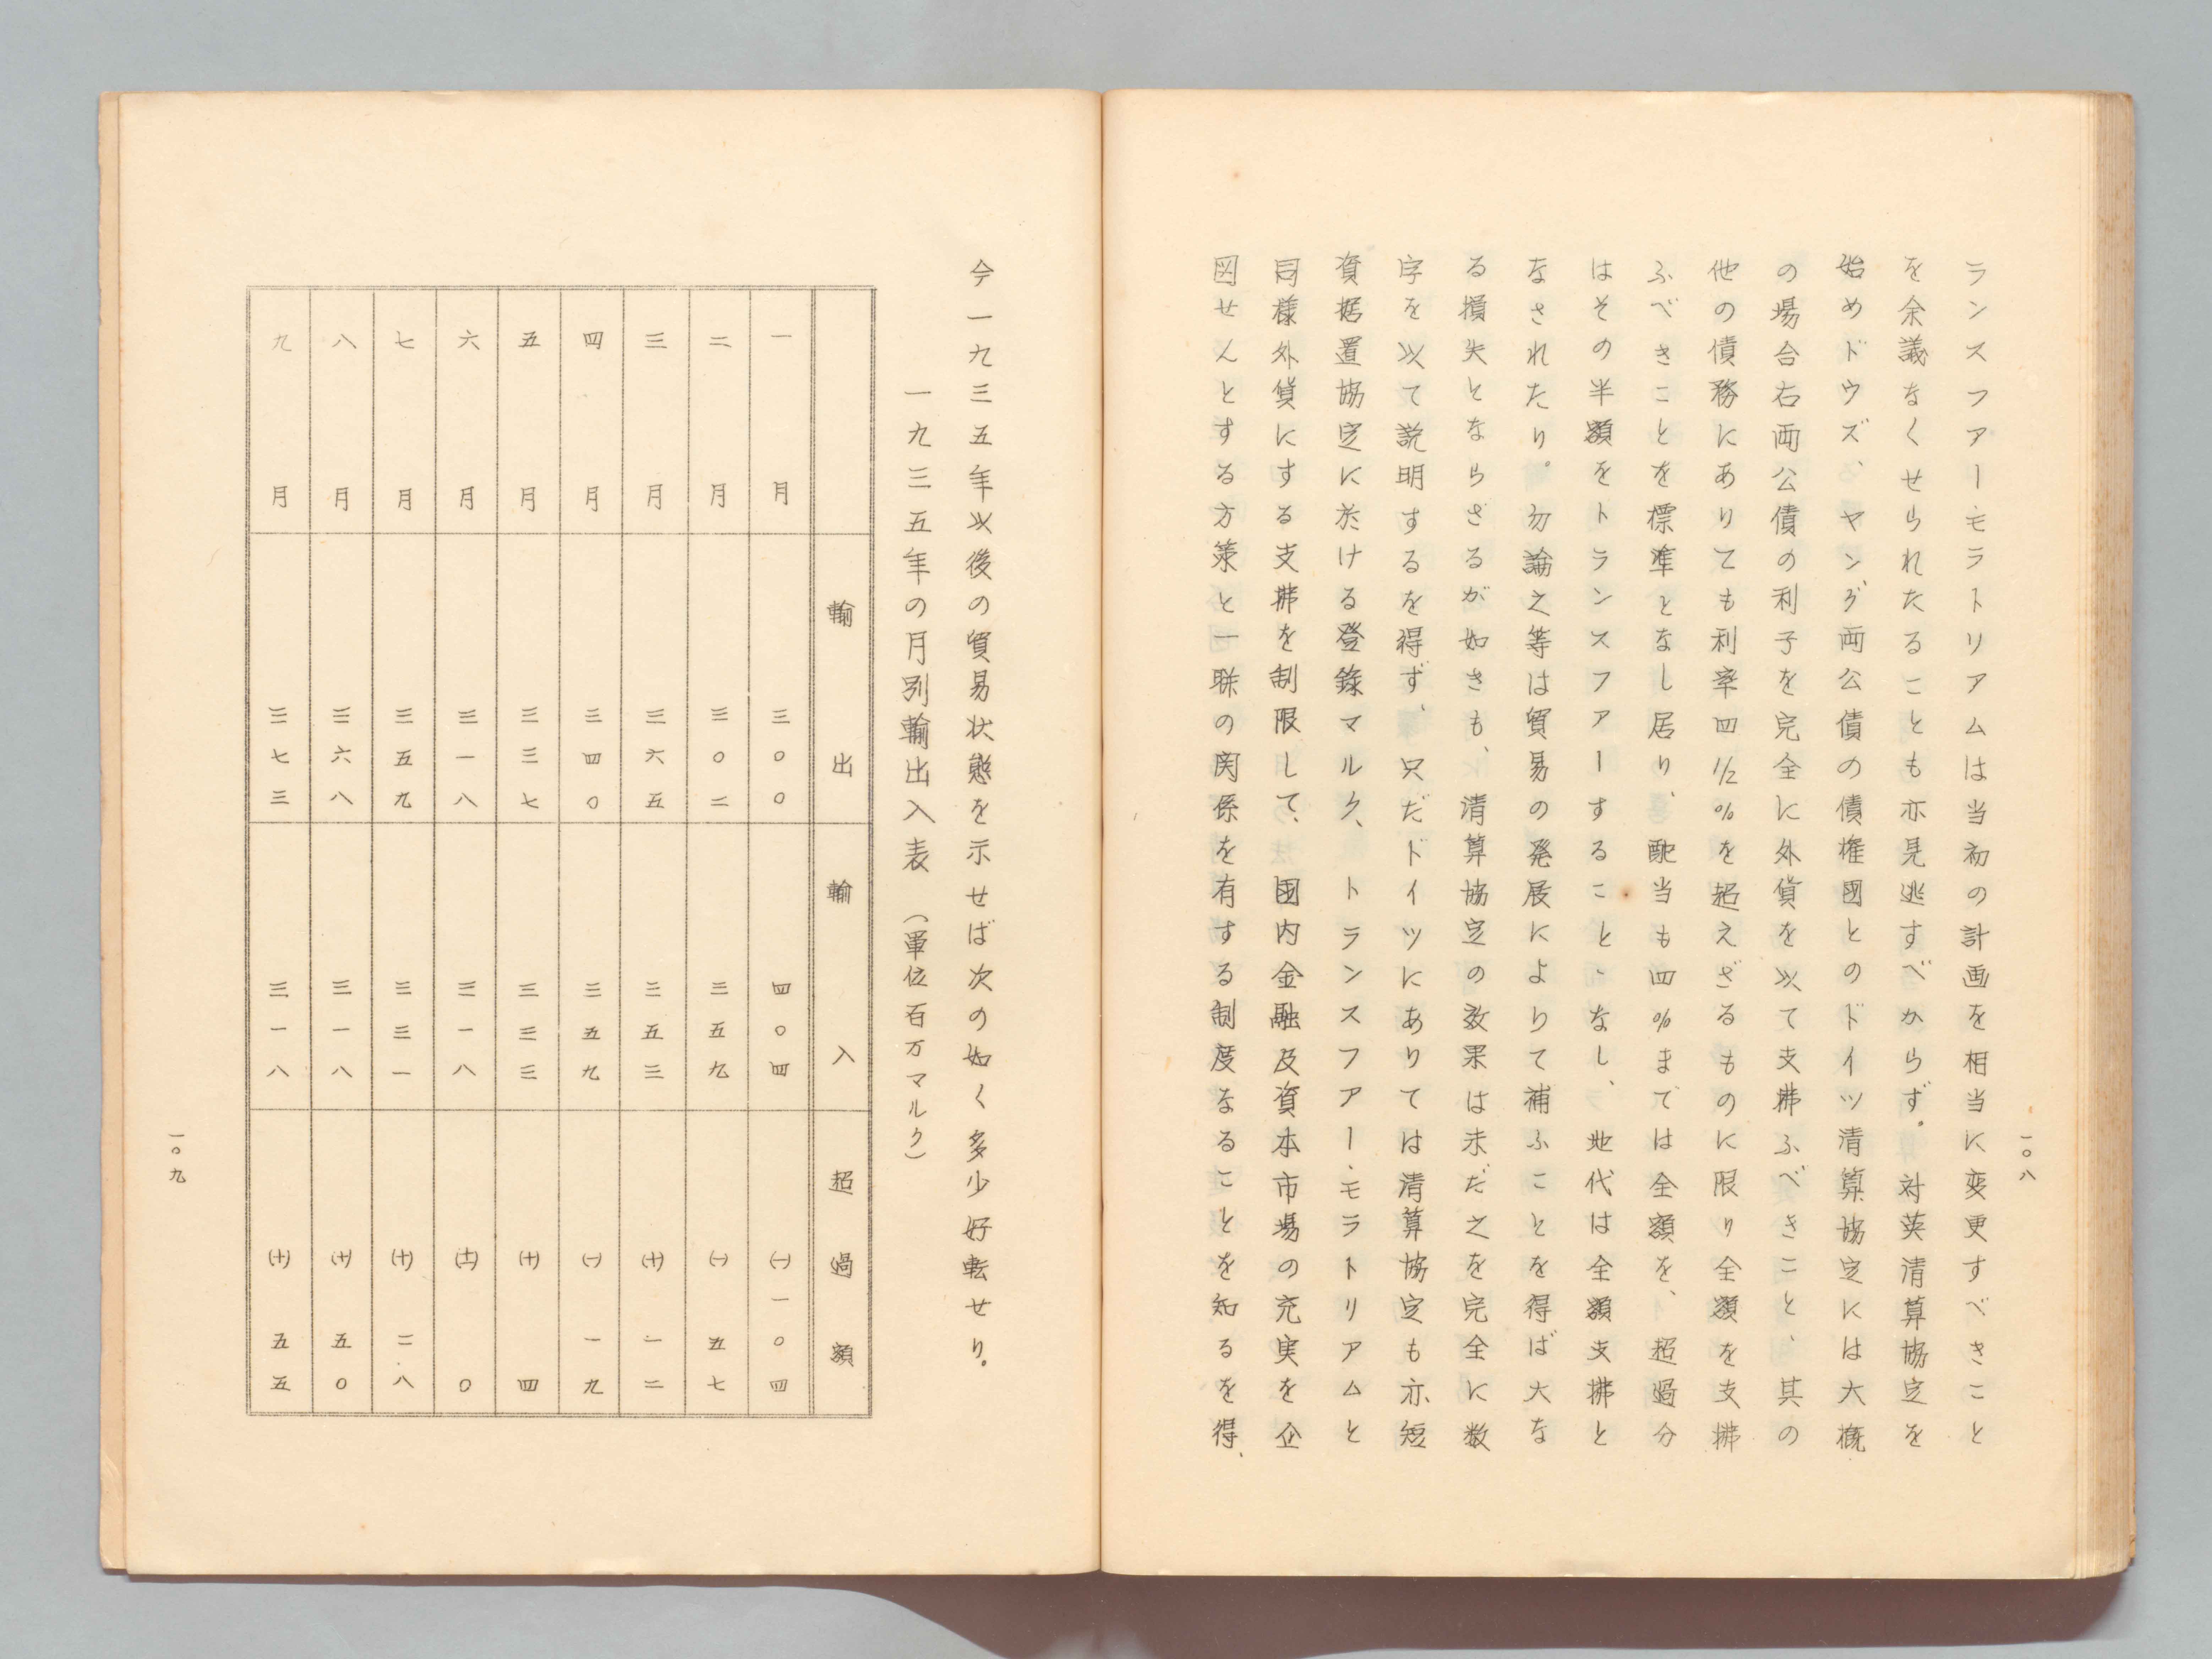 一〇八
ランスファー・モラトリアムは当初の計画を相当に変更すべきこと
を余議なくせられたることも亦見逃すべからず。対英清算協定を
始めドウズ、ヤング両公債の債権国とのドイツ清算協定には大概
の場合右両公債の利子を完全に外貨を以て支拂ふべきこと、其の
他の債務にありても利率四1/2%を超えざるものに限り全額を支拂
ふべきことを標準となし居り、配当も四%までは全額を、超過分
はその半額をトランスファーすることゝなし、地代は全額支拂と
なされたり。勿論之等は貿易の発展によりて補ふことを得ば大な
る損失とならざるが如きも、清算協定の效果は未だ之を完全に数
字を以て説明するを得ず、只だドイツにありては清算協定も亦短
資据置協定に於ける登錄マルク、トランスファー・モラトリアムと
同様外貨にする支拂を制限して、国内金融及資本市場の充実を企
図せんとする方策と一聯の関係を有する制度なることを知るを得、
今一九三五年以後の貿易状態を示せば次の如く多少好転せり。
一九三五年の月別輸出入表 (單位百万マルク)
輸出 輸入 超過額
一月 三〇〇 四〇四 (一)一〇四
二月 三〇二 三五九 (一)五七
三月 三六五 三五三 (十)一二
四月 三四〇 三五九 (一)一九
五月 三三七 三三三 (十)四
六月 三一八 三一八 (±)〇
七月 三五九 三三一 (十)二八
八月 三六八 三一八 (十)五〇
九月 三七三 三一八 (十)五五
一〇九